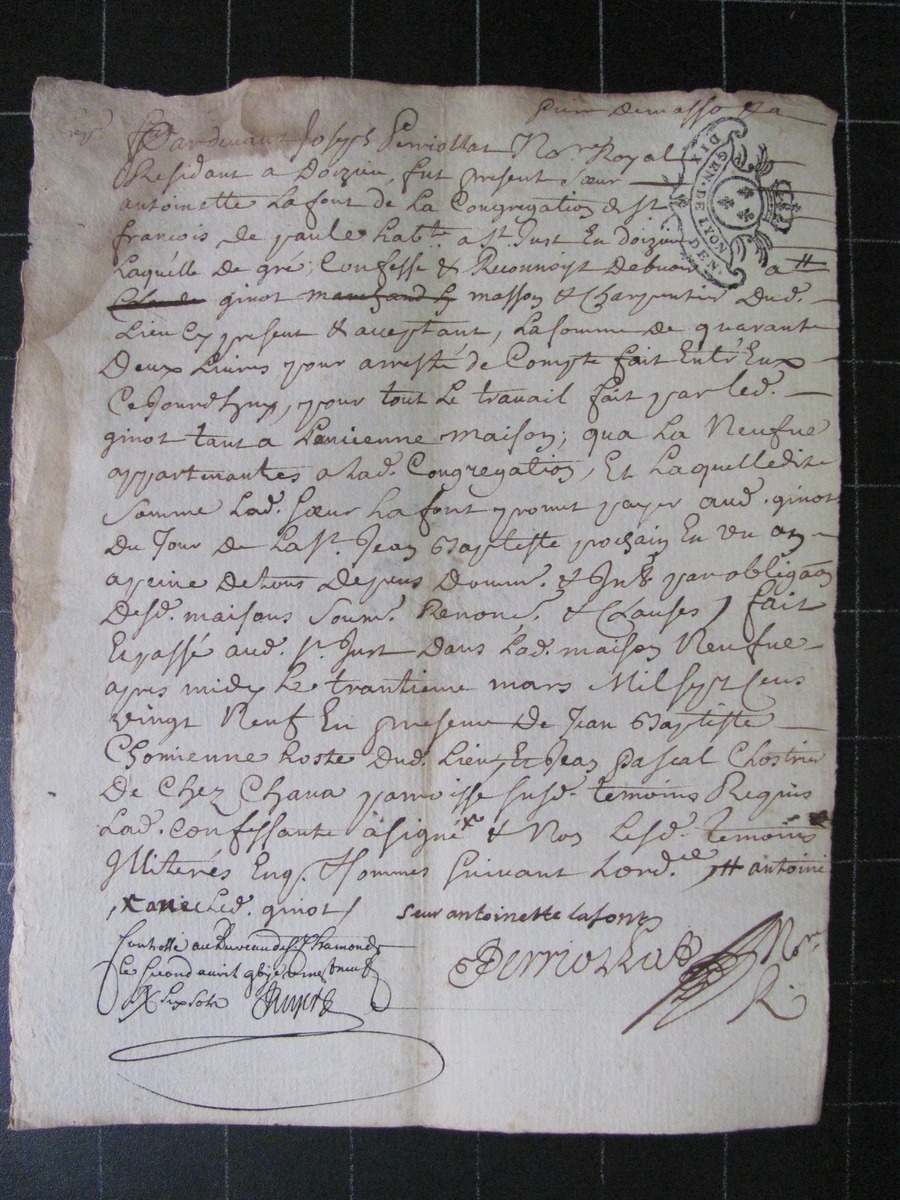 Pardevant Joseph Perriollat No.re Royal
Residant a Doizieu, fut present Sœur
antoinette Lafont de La Congregation de St
francois de paule habte. a St. Just En doizieu
Laquelle de gré, Confesse & Reconnoist Debvoir a #
Claude ginot marchand masson & Charpentier Dud.
Lieu Cy present & acceptant, La somme de quarante
Deux Livres pour arresté de Compte fait Entr'Eux
Cejourdhuy, pour tout Le travail fait par led.
ginot tant a L'ancienne maison, qua La Neufve
appartenantes a Lad. Congregation, Et Laquelledite
Somme Lad. Sœur Lafont promet payer aud. ginot
Du Jour de La St. Jean Baptiste prochain En un an
a peine de tous Depens Domm. & Int. par obligaon
Desd. maisons Soum. Renonc. & Clauses, fait
Et passé aud. St. Just Dans Lad. maison Neufve
apres midy Le trantieme mars Mil sept Cens
vingt Neuf En presence de Jean Baptiste
Chomienne hoste Dud. Lieu, Et Jean Pascal
De Chez Chava parroisse susd. temoins Requis
Lad. confessante à signé & Non Lesd. temoins
Illiterés Enq. & Sommes suivant Lord.ce # antoine
x avec Led. ginot
seur antoinette lafont
Perriollat No.re
R.
Controllé au Bureau de St. Chamond
Le second avril
Rx six sols
GEN. DE LYON
DIX DEN.